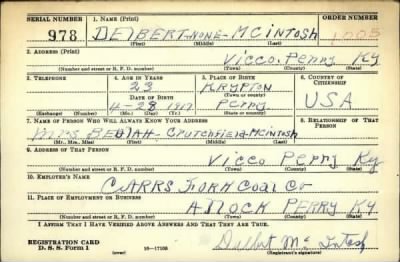 SERIAL NUMBER 1. NAME (Print) ORDER NUMBER
978 DELBERT-NONE-MCINTOSH 1005
(First) (Middle) (Last)
2. ADDRESS (Print)
Vicco. Perry Ky
(Number and street or R. F. D. number) (Town) (County) (State)
3. TELEPHONE 4. AGE IN YEARS 5. PLACE OF BIRTH 6. COUNTRY OF CITIZENSHIP
23 KRYPTON
DATE OF BIRTH (Town or county)
4-28 1917 Perry USA
(Exchange) (Number) (Mo.) (Day) (Yr.) (State or country)
7. NAME OF PERSON WHO WILL ALWAYS KNOW YOUR ADDRESS 8. RELATIONSHIP OF THAT PERSON
MRS CRUTCHFIELD-MCINTOSH
(Mr., Mrs., Miss) (First) (Middle) (Last)
9. ADDRESS OF THAT PERSON
Vicco Perry Ky
(Number and street or R. F. D. number) (Town) (County) (State)
10. EMPLOYER'S NAME
CARRS FORK COAL CO
11. PLACE OF EMPLOYMENT OR BUSINESS
PERRY KY
(Number and street or R. F. D. number) (Town) (County) (State)
I AFFIRM THAT I HAVE VERIFIED ABOVE ANSWERS AND THAT THEY ARE TRUE.
REGISTRATION CARD
D. S. S. Form 1 16—17105 Delbert McIntosh
(over) (Registrant's signature)